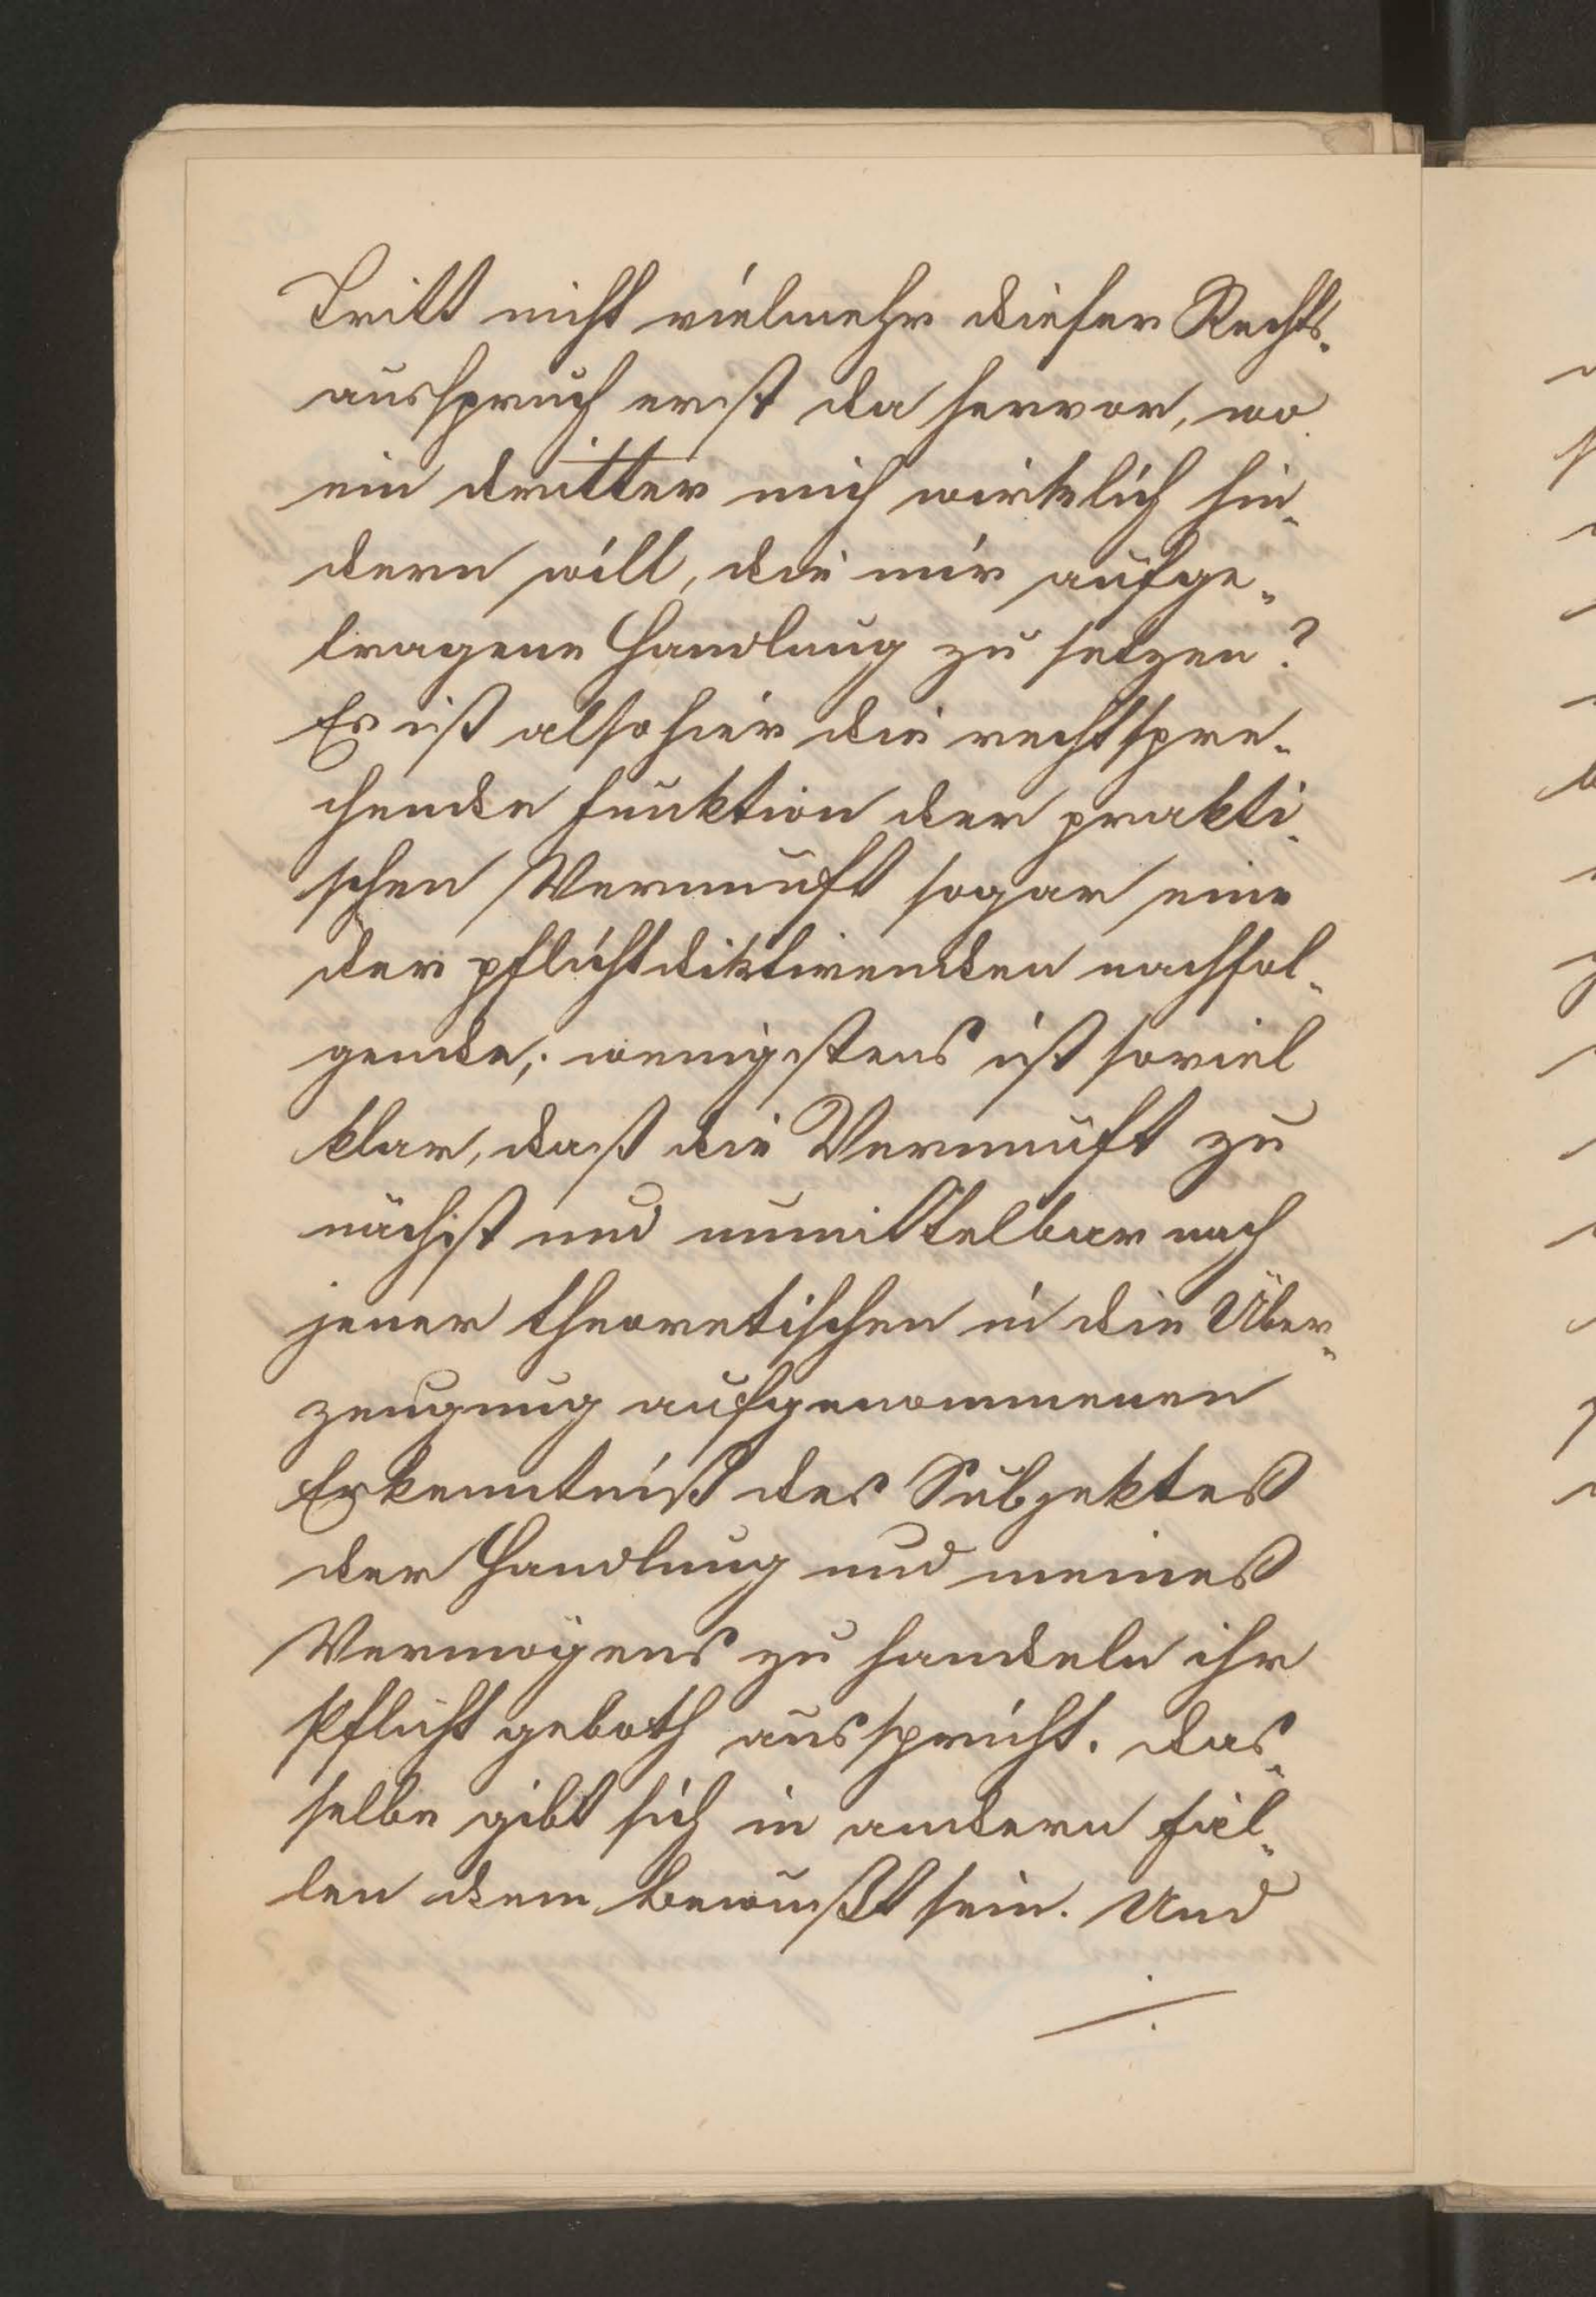 Tritt nicht vielmehr dieser Rechts-
ausspruch erst da hervor, wo
ein dritter mich wirklich hin-
dern will, die mir aufge-
tragene Handlung zu setzen?
Es ist also hier die rechtspre-
chende Funktion der prakti-
schen Vernunft sogar eine
der pflichtdiktirenden nachfol-
gende; wenigstens ist soviel
klar, daß die Vernunft zu
nächst und unmittelbar nach
jener theoretischen in die Über-
zeugung aufgenommenen
Erkenntniß des Subjektes
der Handlung und meines
Vermögens zu handeln ihr
Pflicht geboth ausspricht. Das-
selbe gibt sich in andern Fäl-
len dem Bewußtsein. Und